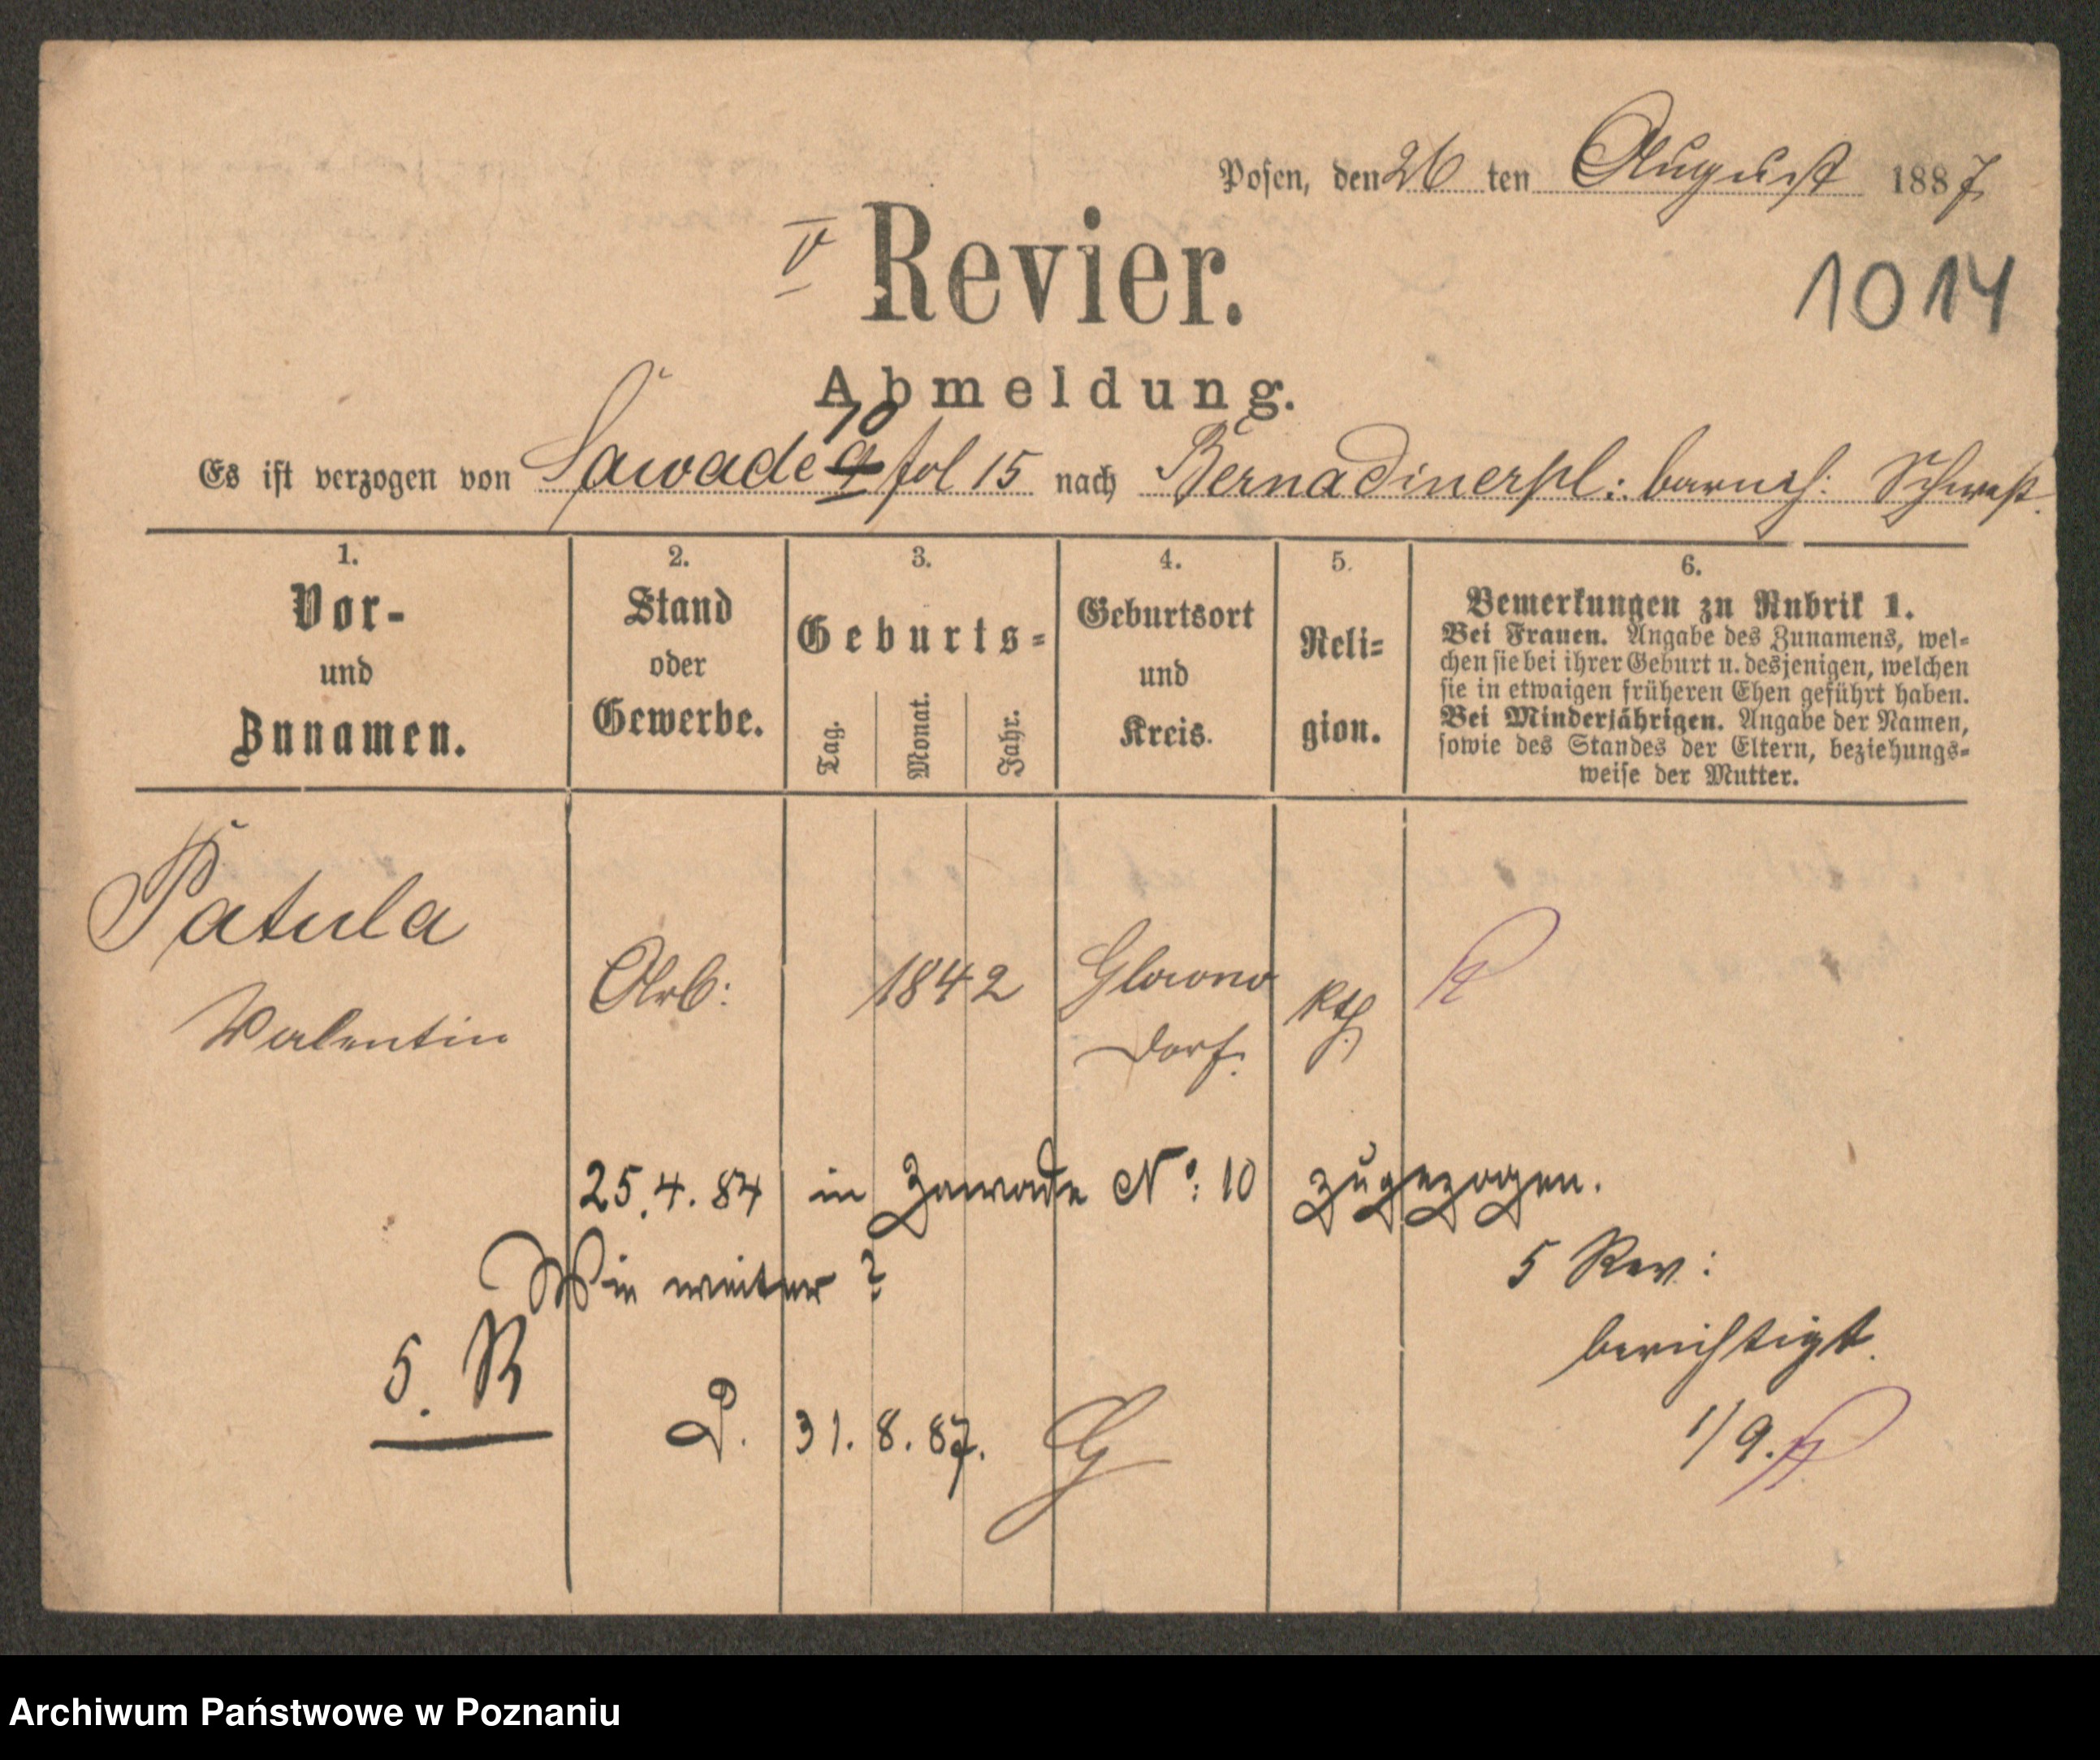 Posen, den 26 ten August 1887
V Revier.
1014
Abmeldung.
10
Es ist verzogen von Sawade 9 fol 15 nach Bernadinerpl: barmh: Schwest.
1. 2. 3. 4. 5. 6.
Vor-
und
Zunamen.
Stand
oder
Gewerbe.
Geburts-
Tag. Monat. Jahr.
Geburtsort
und
Kreis.
Reli-
gion.
Bemerkungen zu Rubrik 1.
Bei Frauen. Angabe des Zunamens, wel-
chen sie bei ihrer Geburt u. desjenigen, welchen
sie in etwaigen früheren Ehen geführt haben.
Bei Minderjährigen. Angabe der Namen,
sowie des Standes der Eltern, beziehungs-
weise der Mutter.
Patula
Valentin
Arb:
1842
Glowno
Dorf.
kth.
25.4.84 in Zawade No: 10 zugezogen.
Wie weiter?
5. R
P. 31.8.87. G
5 Rev:
berichtigt.
1/9.
Archiwum Państwowe w Poznaniu